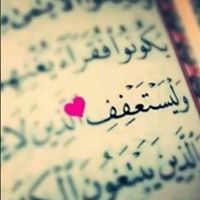 يَكُونُوا فُقَرَاءَ يُغْنِهِمُ
وَلْيَسْتَعْفِفِ الَّذِينَ لَا
الَّذِينَ يَبْتَغُونَ